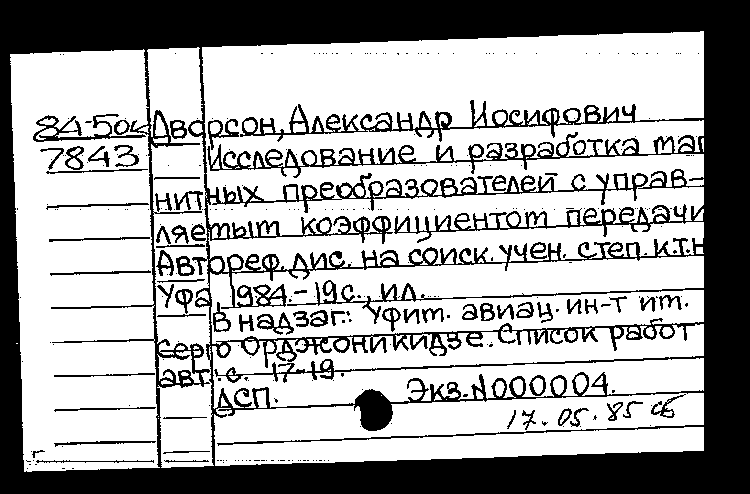 84-50к Дворсон, Александр Иосифович
7843 Исследование и разработка маг
нитных преобразователей с управ-
ляемым коэффициентом передачи
Автореф. дис. на соиск. учен. степ. к.т.н
Уфа, 1984.-19с., ил.
В надзаг.: Уфим. авиац. ин-т им.
Серго Орджоникидзе. Список работ
авт.: с. 17-19.
ДСП. Экз. N000004.
17.05.85